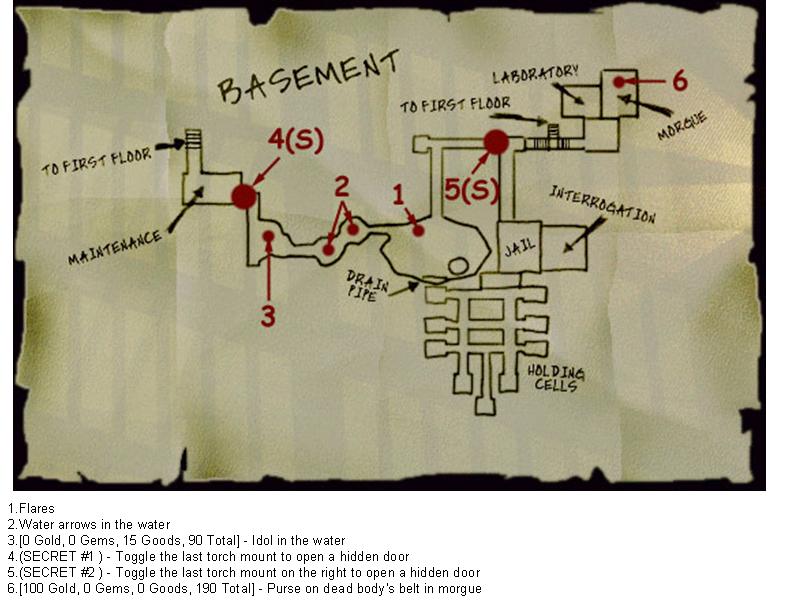 BASEMENT
LABORATORY
6
TO FIRST FLOOR
MORGUE
4(S)
TO FIRST FLOOR
5(S)
2
1
INTERROGATION
MAINTENANCE
JAIL
DRAIN
PIPE
3
HOLDING
CELLS
1.Flares
2.Water arrows in the water
3.[0 Gold, 0 Gems, 15 Goods, 90 Total] - Idol in the water
4.(SECRET #1 ) - Toggle the last torch mount to open a hidden door
5.(SECRET #2 ) - Toggle the last torch mount on the right to open a hidden door
6.[100 Gold, 0 Gems, 0 Goods, 190 Total] - Purse on dead body's belt in morgue